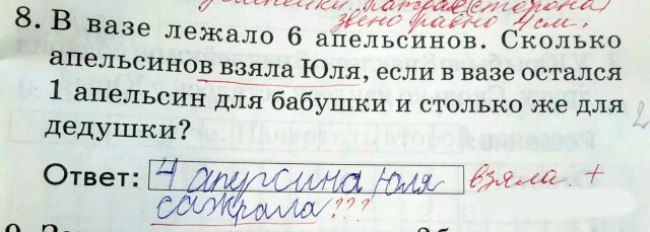 звено равно 4 см.
8. В вазе лежало 6 апельсинов. Сколько
апельсинов взяла Юля, если в вазе остался
1 апельсин для бабушки и столько же для
дедушки?
Ответ: 4 апурсина Юля взяла. +
сажрала ???